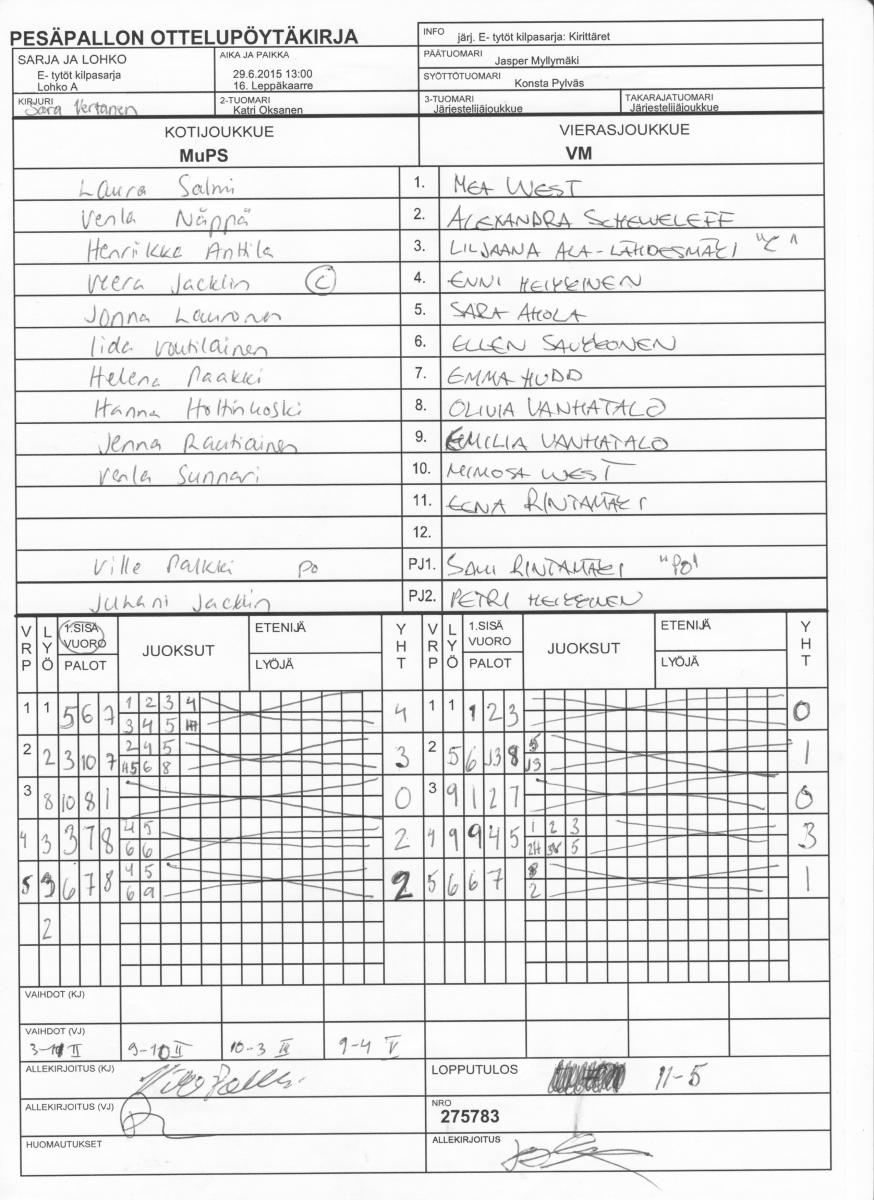 PESÄPALLON OTTELUPÖYTÄKIRJA
INFO järj. E- tytöt kilpasarja: Kirittäret
SARJA JA LOHKO
E- tytöt kilpasarja
Lohko A
AIKA JA PAIKKA
29.6.2015 13:00
16. Leppäkaarre
PÄÄTUOMARI
Jasper Myllymäki
SYÖTTÖTUOMARI
Konsta Pylväs
KIRJURI
Sara Vertanen
2-TUOMARI
Katri Oksanen
3-TUOMARI
Järjestelijäjoukkue
TAKARAJATUOMARI
Järjestelijäjoukkue
KOTIJOUKKUE
MuPS
VIERASJOUKKUE
VM
Laura Salmi 1. MEA WEST
Venla Näppä 2. ALEXANDRA SCHEWELEFF
Henriikka Anttila 3. LILJAANA ALA-LÄHDESMÄKI "C"
Veera Jacklin C 4. ENNI HEIKKINEN
Jonna Lauronen 5. SARA AHOLA
Iida Voutilainen 6. ELLEN SAUKKONEN
Helena Paakki 7. EMMA HUDD
Hanna Holtinkoski 8. OLIVIA VANHATALO
Jenna Rautiainen 9. EMILIA VANHATALO
Venla Sunnari 10. MIMOSA WEST
11. EENA RINTAMÄKI
12.
Ville Palkki PO PJ1. SAMI RINTAMÄKI "PO"
Juhani Jacklin PJ2. PETRI HEIKKINEN
VRP LYÖ 1.SISÄ VUORO PALOT JUOKSUT ETENIJÄ LYÖJÄ YHT VRP LYÖ 1.SISÄ VUORO PALOT JUOKSUT ETENIJÄ LYÖJÄ YHT
1 1 5 6 7 1 2 3 4 4 1 1 1 2 3 0
3 4 5
2 2 3 10 7 2 4 5 3 2 5 6 J3 8 5 1
H5 6 8 J3
3 8 10 8 1 0 3 9 1 2 7 0
4 3 3 7 8 4 5 2 4 9 9 4 5 1 2 3 3
6 6 2H 5
5 3 6 7 8 4 5 2 5 6 6 7 8 1
6 9 2
2
VAIHDOT (KJ)
VAIHDOT (VJ)
II 9-10 II 10-3 III 9-4 V
ALLEKIRJOITUS (KJ)
LOPPUTULOS 11-5
ALLEKIRJOITUS (VJ)
NRO
275783
HUOMAUTUKSET
ALLEKIRJOITUS